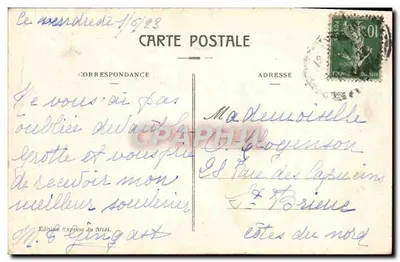 Ce vendredi 1/6/23
CARTE POSTALE
10c
CORRESPONDANCE
ADRESSE
Je vous ai pas
oubliée devant la
grotte et vous prie
de recevoir mon
meilleur souvenir
M. E Gingast
Mademoiselle
C. Rogenson
28 Rue des Capucins
St Brieuc
Côtes du nord
CPARAMA
Edition Express du Midi.